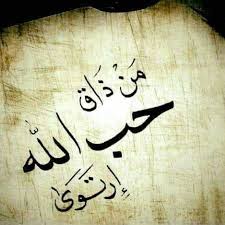 مَنْ ذَاق
حب الله
إرتوى